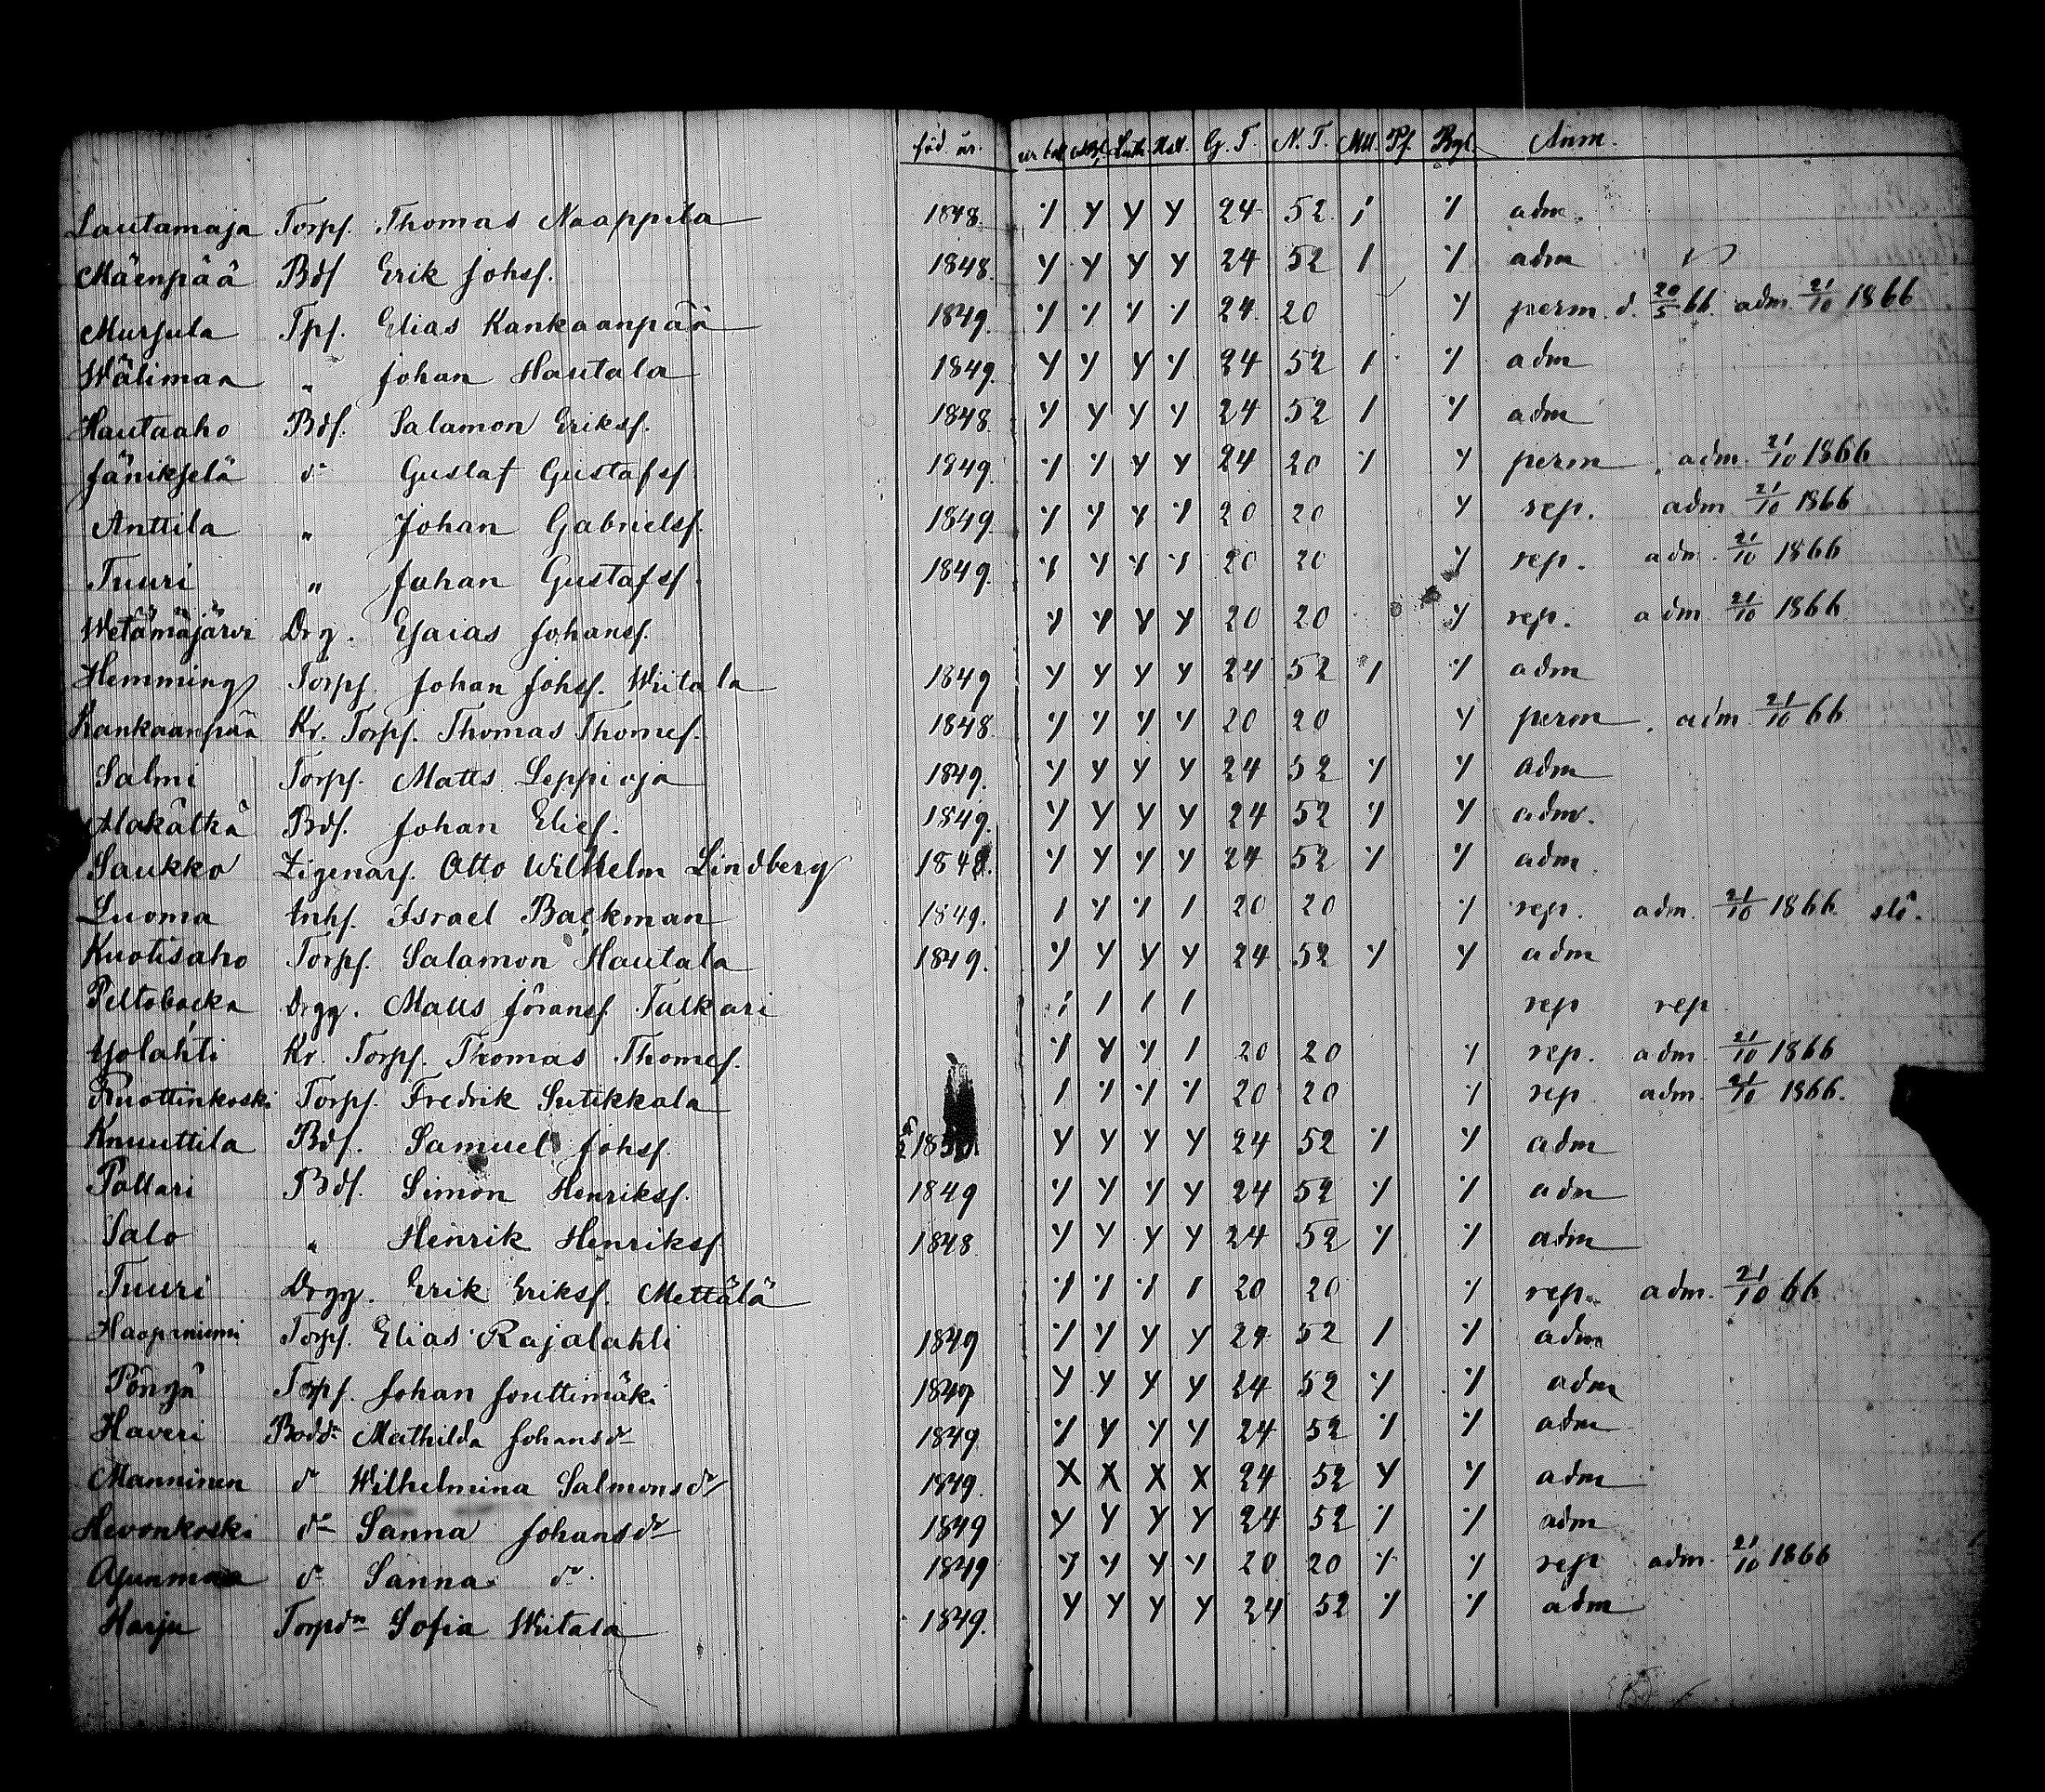 föd. år. G. T. N. T. Pf. Anm.
Lautamaja Torpf. Thomas Naappila 1848. 24 52 adm.
Mäenpää Bdf Erik Johsf. 1848. 24 52 adm
Murjula Tpf. Elias Kankaanpää 1849. 24 20 perm. d. 20/5 66. adm. 21/10 1866
Wälimaa " Johan Hautala 1849. 24 52 adm
Hautaaho Bdf. Salamon Eriksf. 1848. 24 52 adm
Jänikselä do Gustaf Gustafsf 1849. 24 20 perm. adm. 21/10 1866
Anttila " Johan Gabrielsf. 1849. 20 20 rep. adm 21/10 1866
Tuuri " Johan Gustafsf. 1849. 20 20 rep. adm. 21/10 1866
Wetämäjärvi Drg. Esaias Johansf. 20 20 rep. adm. 21/10 1866
Hemming Torpf. Johan Johsf. Wiitala 1849 24 52 adm
Kankaanpää Kr. Torpf. Thomas Thomef. 1848. 20 20 perm. adm 21/10 66
Salmi Torpf. Matts Leppioja 1849. 24 52 adm
Alakätkä Bdf. Johan Elief. 1849. 24 52 adm.
Saukko Zigenarf. Otto Wilhelm Lindberg 1848. 24 52 adm
Luoma Inhf. Israel Backman 1849. 20 20 rep. adm. 21/10 1866.
Kuotisaho Torpf. Salamon Hautala 1849. 24 52 adm
Peltobacka Drgg. Matts Jöransf. Talkari rep rep
Yolahti Kr. Torpf. Thomas Thomef. 20 20 rep. adm. 21/10 1866
Ruottinkoski Torpf. Fredrik Sutikkala 20 20 rep adm. 21/10 1866.
Knuuttila Bdf. Samuel Johsf. 1850 24 52 adm
Pollari Bdf. Simon Henriksf. 1849 24 52 adm
Salo " Henrik Henriksf 1848. 24 52 adm
Tuuri Drgg. Erik Eriksf. Mettälä 20 20 rep. adm. 21/10 66
Haapaniemi Torpf. Elias Rajalahti 1849 24 52 adm
Pöngä Torpf. Johan Jouttimäki 1849 24 52 adm
Haveri Bondr Mathilda Johansdr 1849 24 52 adm
Manninen dr Wilhelmina Salmonsdr 1849. 24 52 adm
Hevonkoski do Sanna Johansdr 1849 24 52 adm
do Sanna do. 1849 20 20 rep adm. 21/10 1866
Harju Torpdr Sofia Wiitala 1849. 24 52 adm